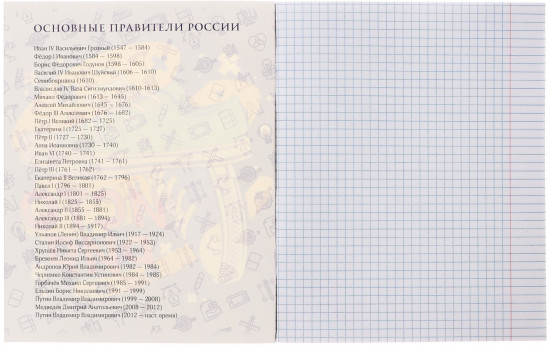 ОСНОВНЫЕ ПРАВИТЕЛИ РОССИИ
Иван IV Васильевич Грозный (1547 — 1584)
Фёдор I Иванович (1584 — 1598)
Борис Фёдорович Годунов (1598 — 1605)
Василий IV Иванович Шуйский (1606 — 1610)
Семибоярщина (1610)
Владислав IV Ваза Сигизмундович (1610-1613)
Михаил Фёдорович (1613 — 1645)
Алексей Михайлович (1645 — 1676)
Фёдор III Алексеевич (1676 — 1682)
Пётр I Великий (1682 — 1725)
Екатерина I (1725 — 1727)
Пётр II (1727 — 1730)
Анна Иоанновна (1730 — 1740)
Иван VI (1740 — 1741)
Елизавета Петровна (1741 — 1761)
Пётр III (1761 — 1762)
Екатерина II Великая (1762 — 1796)
Павел I (1796 — 1801)
Александр I (1801 — 1825)
Николай I (1825 — 1855)
Александр II (1855 — 1881)
Александр III (1881 — 1894)
Николай II (1894 — 1917)
Ульянов (Ленин) Владимир Ильич (1917 — 1924)
Сталин Иосиф Виссарионович (1922 — 1953)
Хрущёв Никита Сергеевич (1953 — 1964)
Брежнев Леонид Ильич (1964 — 1982)
Андропов Юрий Владимирович (1982 — 1984)
Черненко Константин Устинович (1984 — 1985)
Горбачёв Михаил Сергеевич (1985 — 1991)
Ельцин Борис Николаевич (1991 — 1999)
Путин Владимир Владимирович (1999 — 2008)
Медведев Дмитрий Анатольевич (2008 — 2012)
Путин Владимир Владимирович (2012 — наст. время)